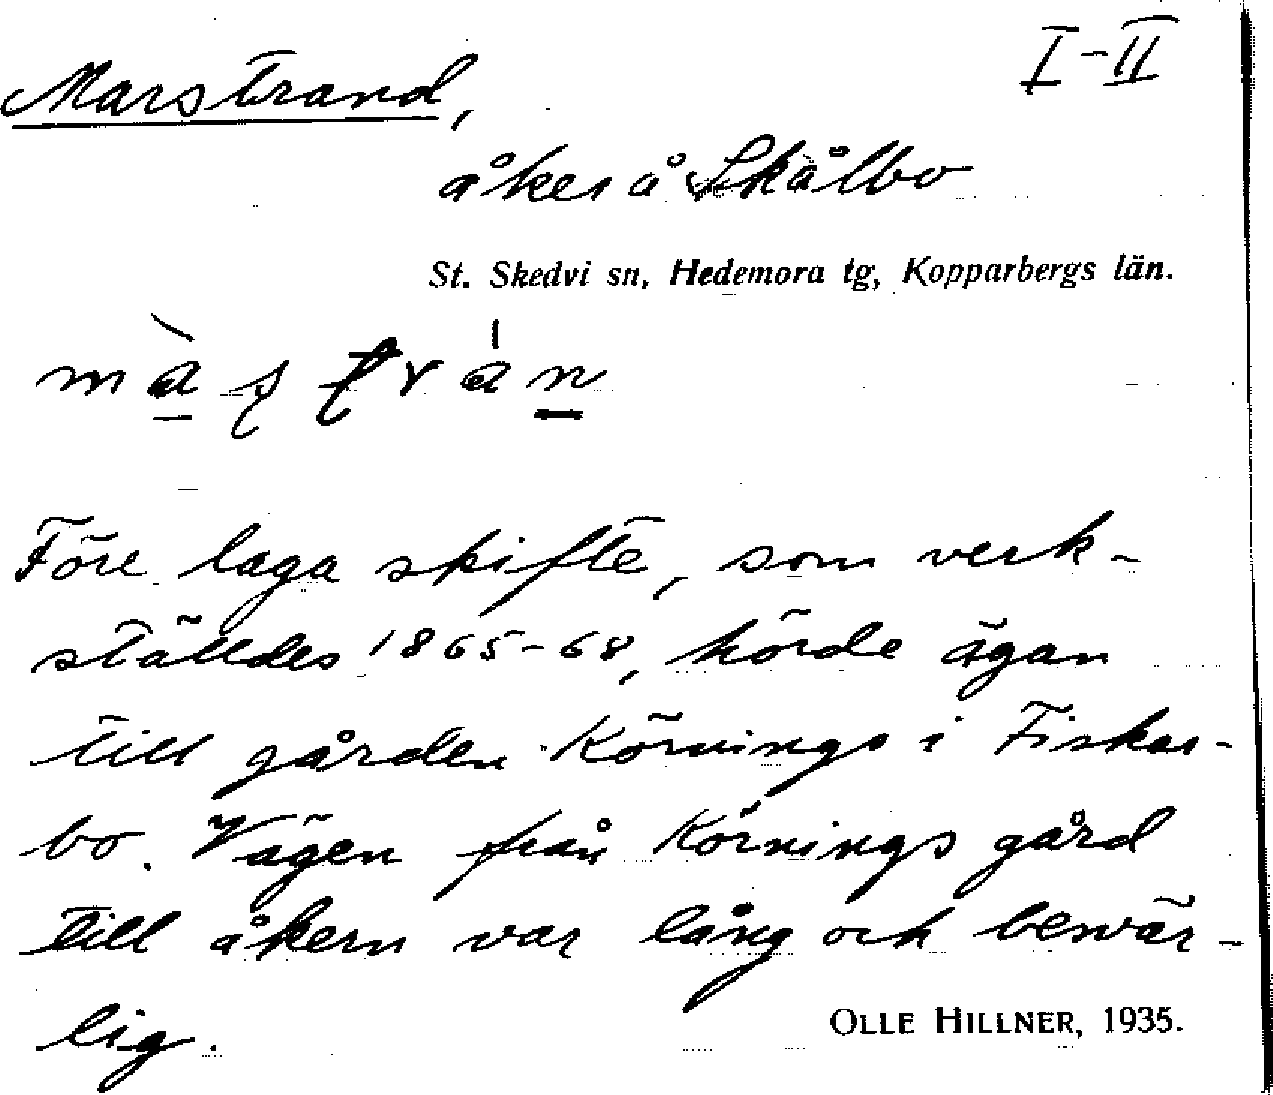 Marstrand,
I-II
åker å Skålbo
St. Skedvi sn, Hedemora tg, Kopparbergs län.
Före laga skifte, som verk-
ställdes 1865-68, hörde ägan
till gården Körnings i Fiskar-
bo. Vägen från Körnings gård
till åkern var lång och besvär-
lig.
OLLE HILLNER, 1935.